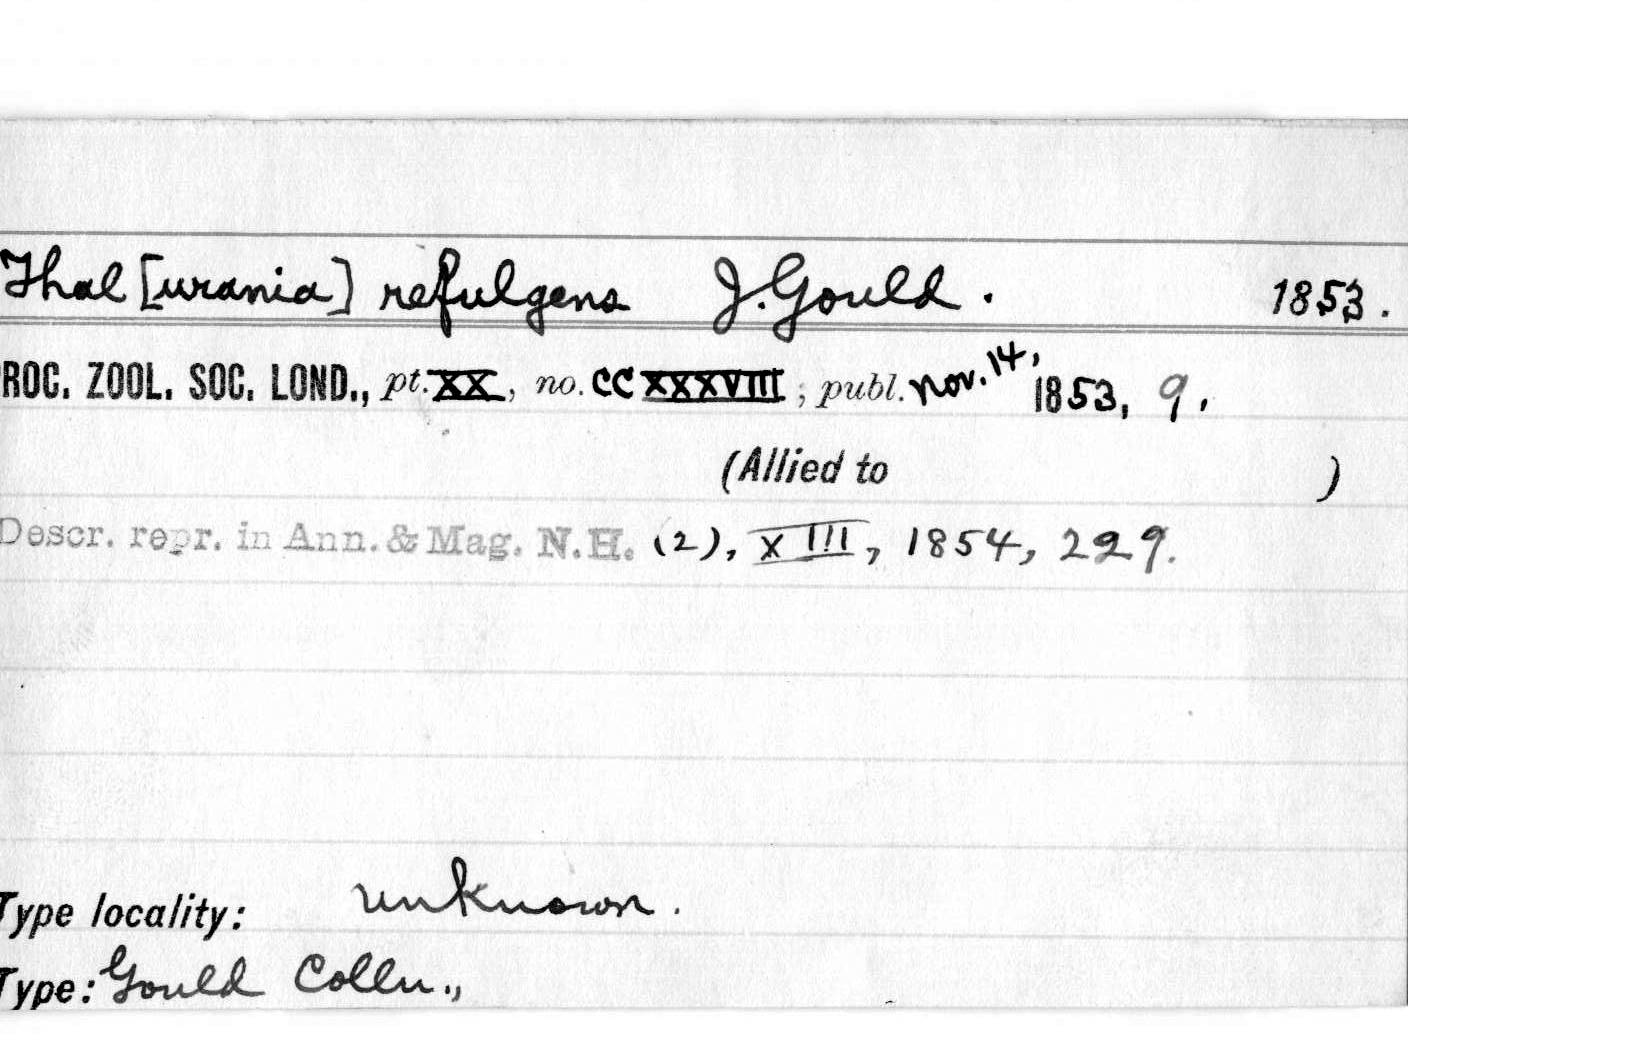 Thal [urania] refulgens J. Gould. 1853.
ROC. ZOOL. SOC. LOND., pt. XX, no. CCXXXVIII; publ. Nov. 14, 1853, 9.
(Allied to )
Descr. repr. in Ann. & Mag. N.H. (2), XIII, 1854, 229.
Type locality: unknown.
Type: Gould Colln.,